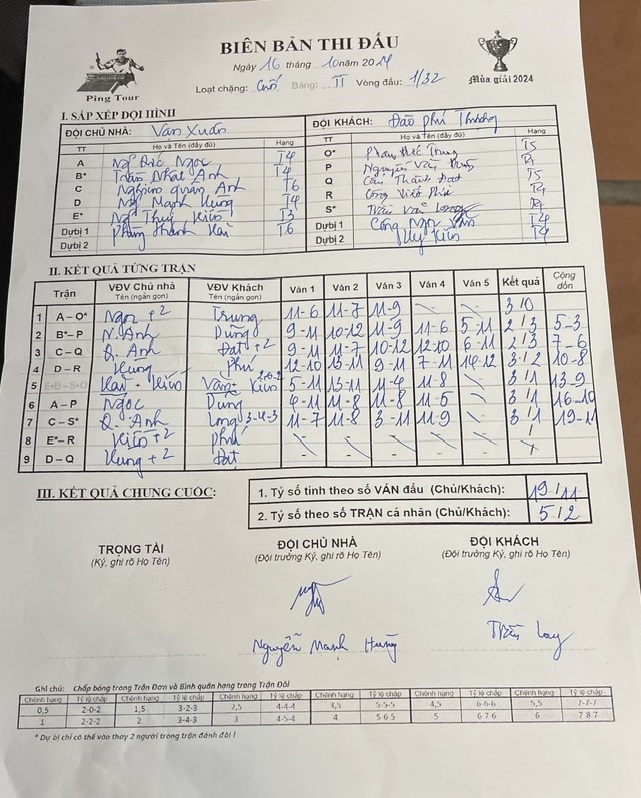 BIÊN BẢN THI ĐẤU
Ngày 16 tháng 10 năm 2024
Loại chặng: Cuối Bảng: II Vòng đấu: 1/32
Ping Tour
Mùa giải 2024
I. SẮP XẾP ĐỘI HÌNH
ĐỘI CHỦ NHÀ: Vân Xuân
ĐỘI KHÁCH: Đào Phú Thượng
TT Họ và Tên (đầy đủ) Hạng
TT Họ và Tên (đầy đủ) Hạng
A Ngô Đức Ngọc T4
O* Phan Đức Trung T5
B* Trần Nhật Anh T4
P Nguyễn Văn
C Nghiêm Quân Anh T6
Q Cấn Thành Đạt T5
D Ngô Mạnh Hùng T4
R Công Viết Phú
E* Ngô Thuý Kiên T3
S* Trần Văn Long
Dự bị 1 Phùng Thành T6
Dự bị 1 Công Ngọc Văn T4
Dự bị 2
Dự bị 2 Huy Kiên T4
II. KẾT QUẢ TỪNG TRẬN
Trận VĐV Chủ nhà VĐV Khách Ván 1 Ván 2 Ván 3 Ván 4 Ván 5 Kết quả Cộng dồn
Tên (ngắn gọn) Tên (ngắn gọn)
1 A – O* Ngọc +2 Trung 11-6 11-7 11-9 \ \ 3/0
2 B* – P N. Anh Dũng 9-11 10-12 11-9 11-6 5-11 2/3 5-3
3 C – Q Q. Anh Đạt +2 9-11 11-7 10-12 12-10 6-11 2/3 7-6
4 D – R Hùng Phú 12-10 13-11 9-11 7-11 14-12 3/2 10-8
5 E+B – S+O + Kiên Văn + Kiên 5-11 13-11 11-4 11-8 \ 3/1 13-9
6 A – P Ngọc Dũng 9-11 11-8 11-8 11-5 \ 3/1 16-10
7 C – S* Q. Anh Long 3-4-3 11-7 11-8 3-11 11-9 \ 3/1 19-11
8 E* – R Kiên +2 Phú
9 D – Q Hùng +2 Đạt
III. KẾT QUẢ CHUNG CUỘC:
1. Tỷ số tính theo số VÁN đấu (Chủ/Khách): 19/11
2. Tỷ số theo số TRẬN cá nhân (Chủ/Khách): 5/2
TRỌNG TÀI
(Ký, ghi rõ Họ Tên)
ĐỘI CHỦ NHÀ
(Đội trưởng Ký, ghi rõ Họ Tên)
ĐỘI KHÁCH
(Đội trưởng Ký, ghi rõ Họ Tên)
Nguyễn Mạnh Hùng
Ghi chú: Chấp bóng trong Trận Đơn và Bình quân hạng trong Trận Đôi
Chênh hạng Tỷ lệ chấp Chênh hạng Tỷ lệ chấp Chênh hạng Tỷ lệ chấp Chênh hạng Tỷ lệ chấp Chênh hạng Tỷ lệ chấp Chênh hạng Tỷ lệ chấp
0,5 2-0-2 1,5 3-2-3 2,5 4-4-4 3,5 5-5-5 4,5 6-6-6 5,5 7-7-7
1 2-2-2 2 3-4-3 3 4-5-4 4 5-6-5 5 6-7-6 6 7-8-7
* Dự bị chỉ có thể vào thay 2 người trong trận đánh đôi !